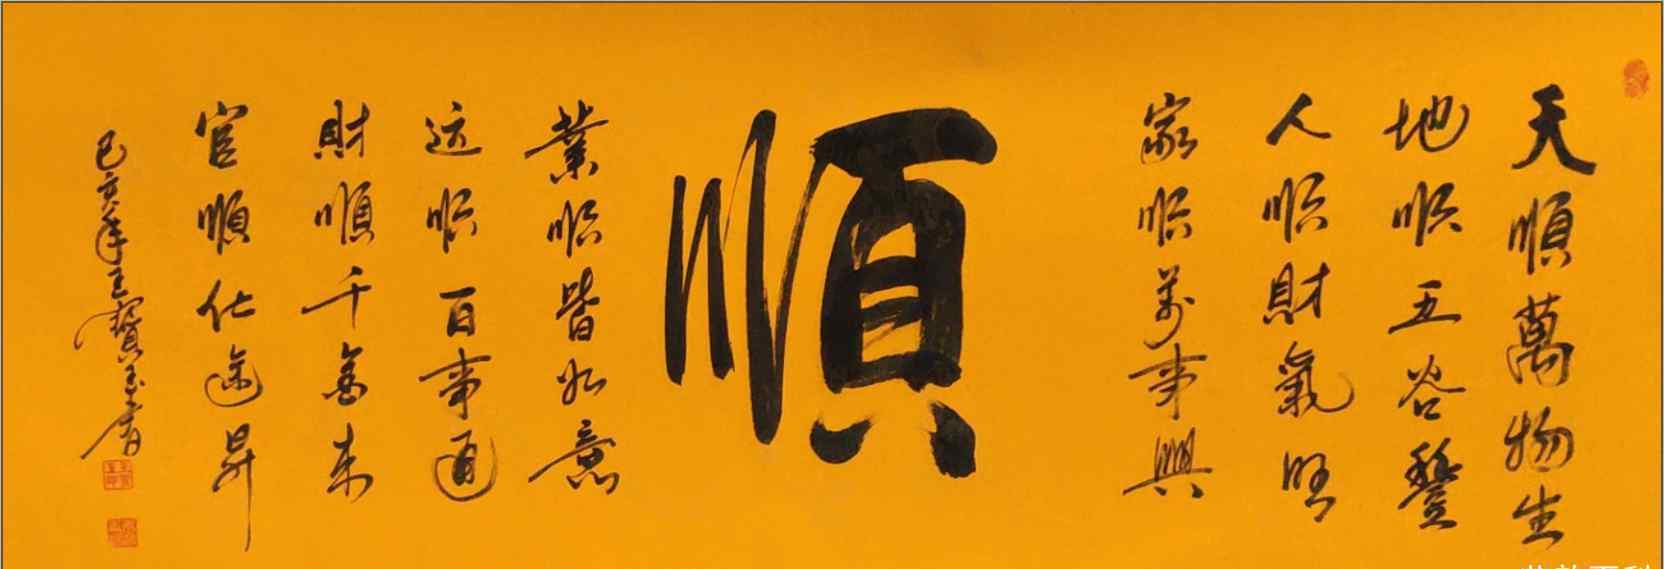 天順萬物生
地順五谷豐
人順財氣旺
家順萬事興
順
業順皆如意
运順百事通
財順千金来
官順仕途昇
己亥年王寶